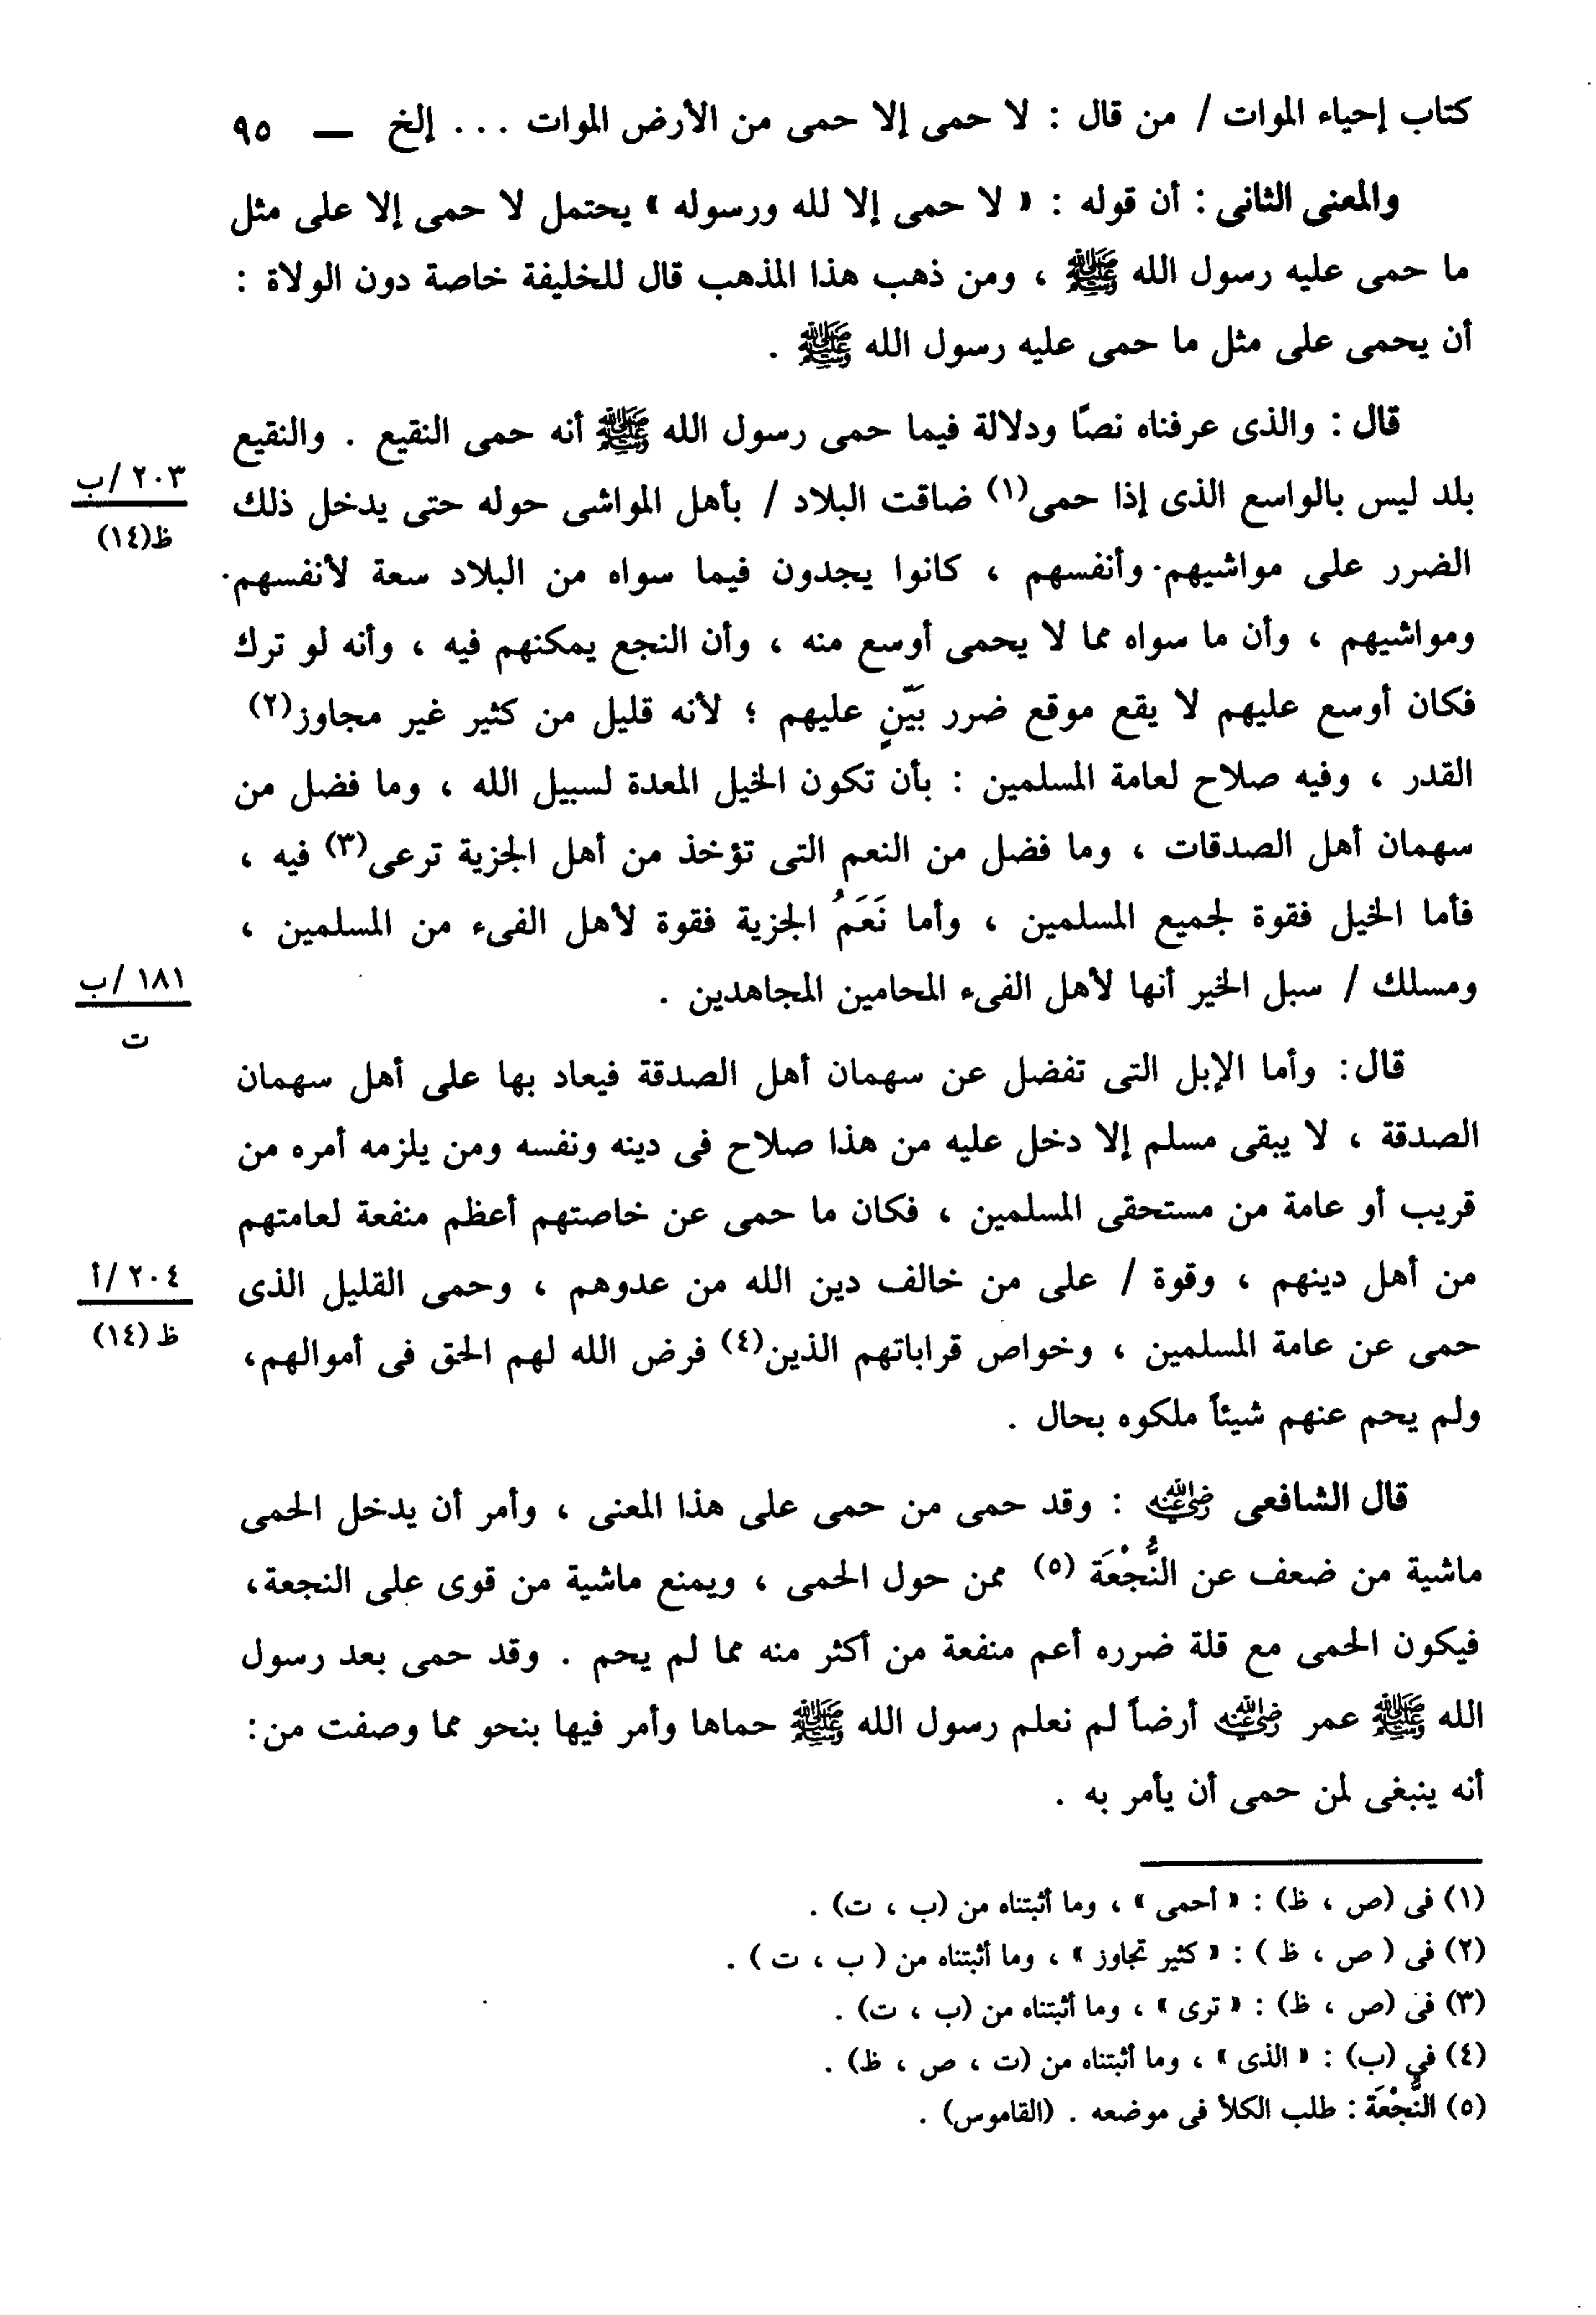 كتاب إحياء الموات / من قال : لا حمى إلا حمى من الأرض الموات ... إلخ — ٩٥
والمعنى الثانى : أن قوله : « لا حمى إلا لله ورسوله » يحتمل لا حمى إلا على مثل
ما حمى عليه رسول الله ﷺ ، ومن ذهب هذا المذهب قال للخليفة خاصة دون الولاة :
أن يحمى على مثل ما حمى عليه رسول الله ﷺ .
قال : والذى عرفناه نصًا ودلالة فيما حمى رسول الله ﷺ أنه حمى النقيع . والنقيع
بلد ليس بالواسع الذى إذا حمى(١) ضاقت البلاد / بأهل المواشى حوله حتى يدخل ذلك
٢٠٣ /ب
ظ(١٤)
الضرر على مواشيهم وأنفسهم ، كانوا يجدون فيما سواه من البلاد سعة لأنفسهم
ومواشيهم ، وأن ما سواه مما لا يحمى أوسع منه ، وأن النجع يمكنهم فيه ، وأنه لو ترك
فكان أوسع عليهم لا يقع موقع ضرر بَيّنٍ عليهم ؛ لأنه قليل من كثير غير مجاوز(٢)
القدر ، وفيه صلاح لعامة المسلمين : بأن تكون الخيل المعدة لسبيل الله ، وما فضل من
سهمان أهل الصدقات ، وما فضل من النعم التى تؤخذ من أهل الجزية ترعى(٣) فيه ،
فأما الخيل فقوة لجميع المسلمين ، وأما نَعَمُ الجزية فقوة لأهل الفىء من المسلمين ،
ومسلك / سبل الخير أنها لأهل الفىء المحامين المجاهدين .
١٨١ /ب
ت
قال : وأما الإبل التى تفضل عن سهمان أهل الصدقة فيعاد بها على أهل سهمان
الصدقة ، لا يبقى مسلم إلا دخل عليه من هذا صلاح فى دينه ونفسه ومن يلزمه أمره من
قريب أو عامة من مستحقى المسلمين ، فكان ما حمى عن خاصتهم أعظم منفعة لعامتهم
من أهل دينهم ، وقوة / على من خالف دين الله من عدوهم ، وحمى القليل الذى
٢٠٤ /أ
ظ (١٤)
حمى عن عامة المسلمين ، وخواص قراباتهم الذين(٤) فرض الله لهم الحق فى أموالهم،
ولم يحم عنهم شيئاً ملكوه بحال .
قال الشافعى رضي الله عنه : وقد حمى من حمى على هذا المعنى ، وأمر أن يدخل الحمى
ماشية من ضعف عن النُّجْعَة (٥) ممن حول الحمى ، ويمنع ماشية من قوى على النجعة،
فيكون الحمى مع قلة ضرره أعم منفعة من أكثر منه مما لم يحم . وقد حمى بعد رسول
الله ﷺ عمر رضي الله عنه أرضاً لم نعلم رسول الله ﷺ حماها وأمر فيها بنحو مما وصفت من :
أنه ينبغى لمن حمى أن يأمر به .
(١) فى (ص ، ظ) : « أحمى » ، وما أثبتناه من (ب ، ت) .
(٢) فى ( ص ، ظ ) : « كثير تجاوز » ، وما أثبتناه من ( ب ، ت ) .
(٣) فى (ص ، ظ) : « ترى » ، وما أثبتناه من (ب ، ت) .
(٤) في (ب) : « الذى » ، وما أثبتناه من (ت ، ص ، ظ) .
(٥) النُّجْعَة : طلب الكلأ فى موضعه . (القاموس) .